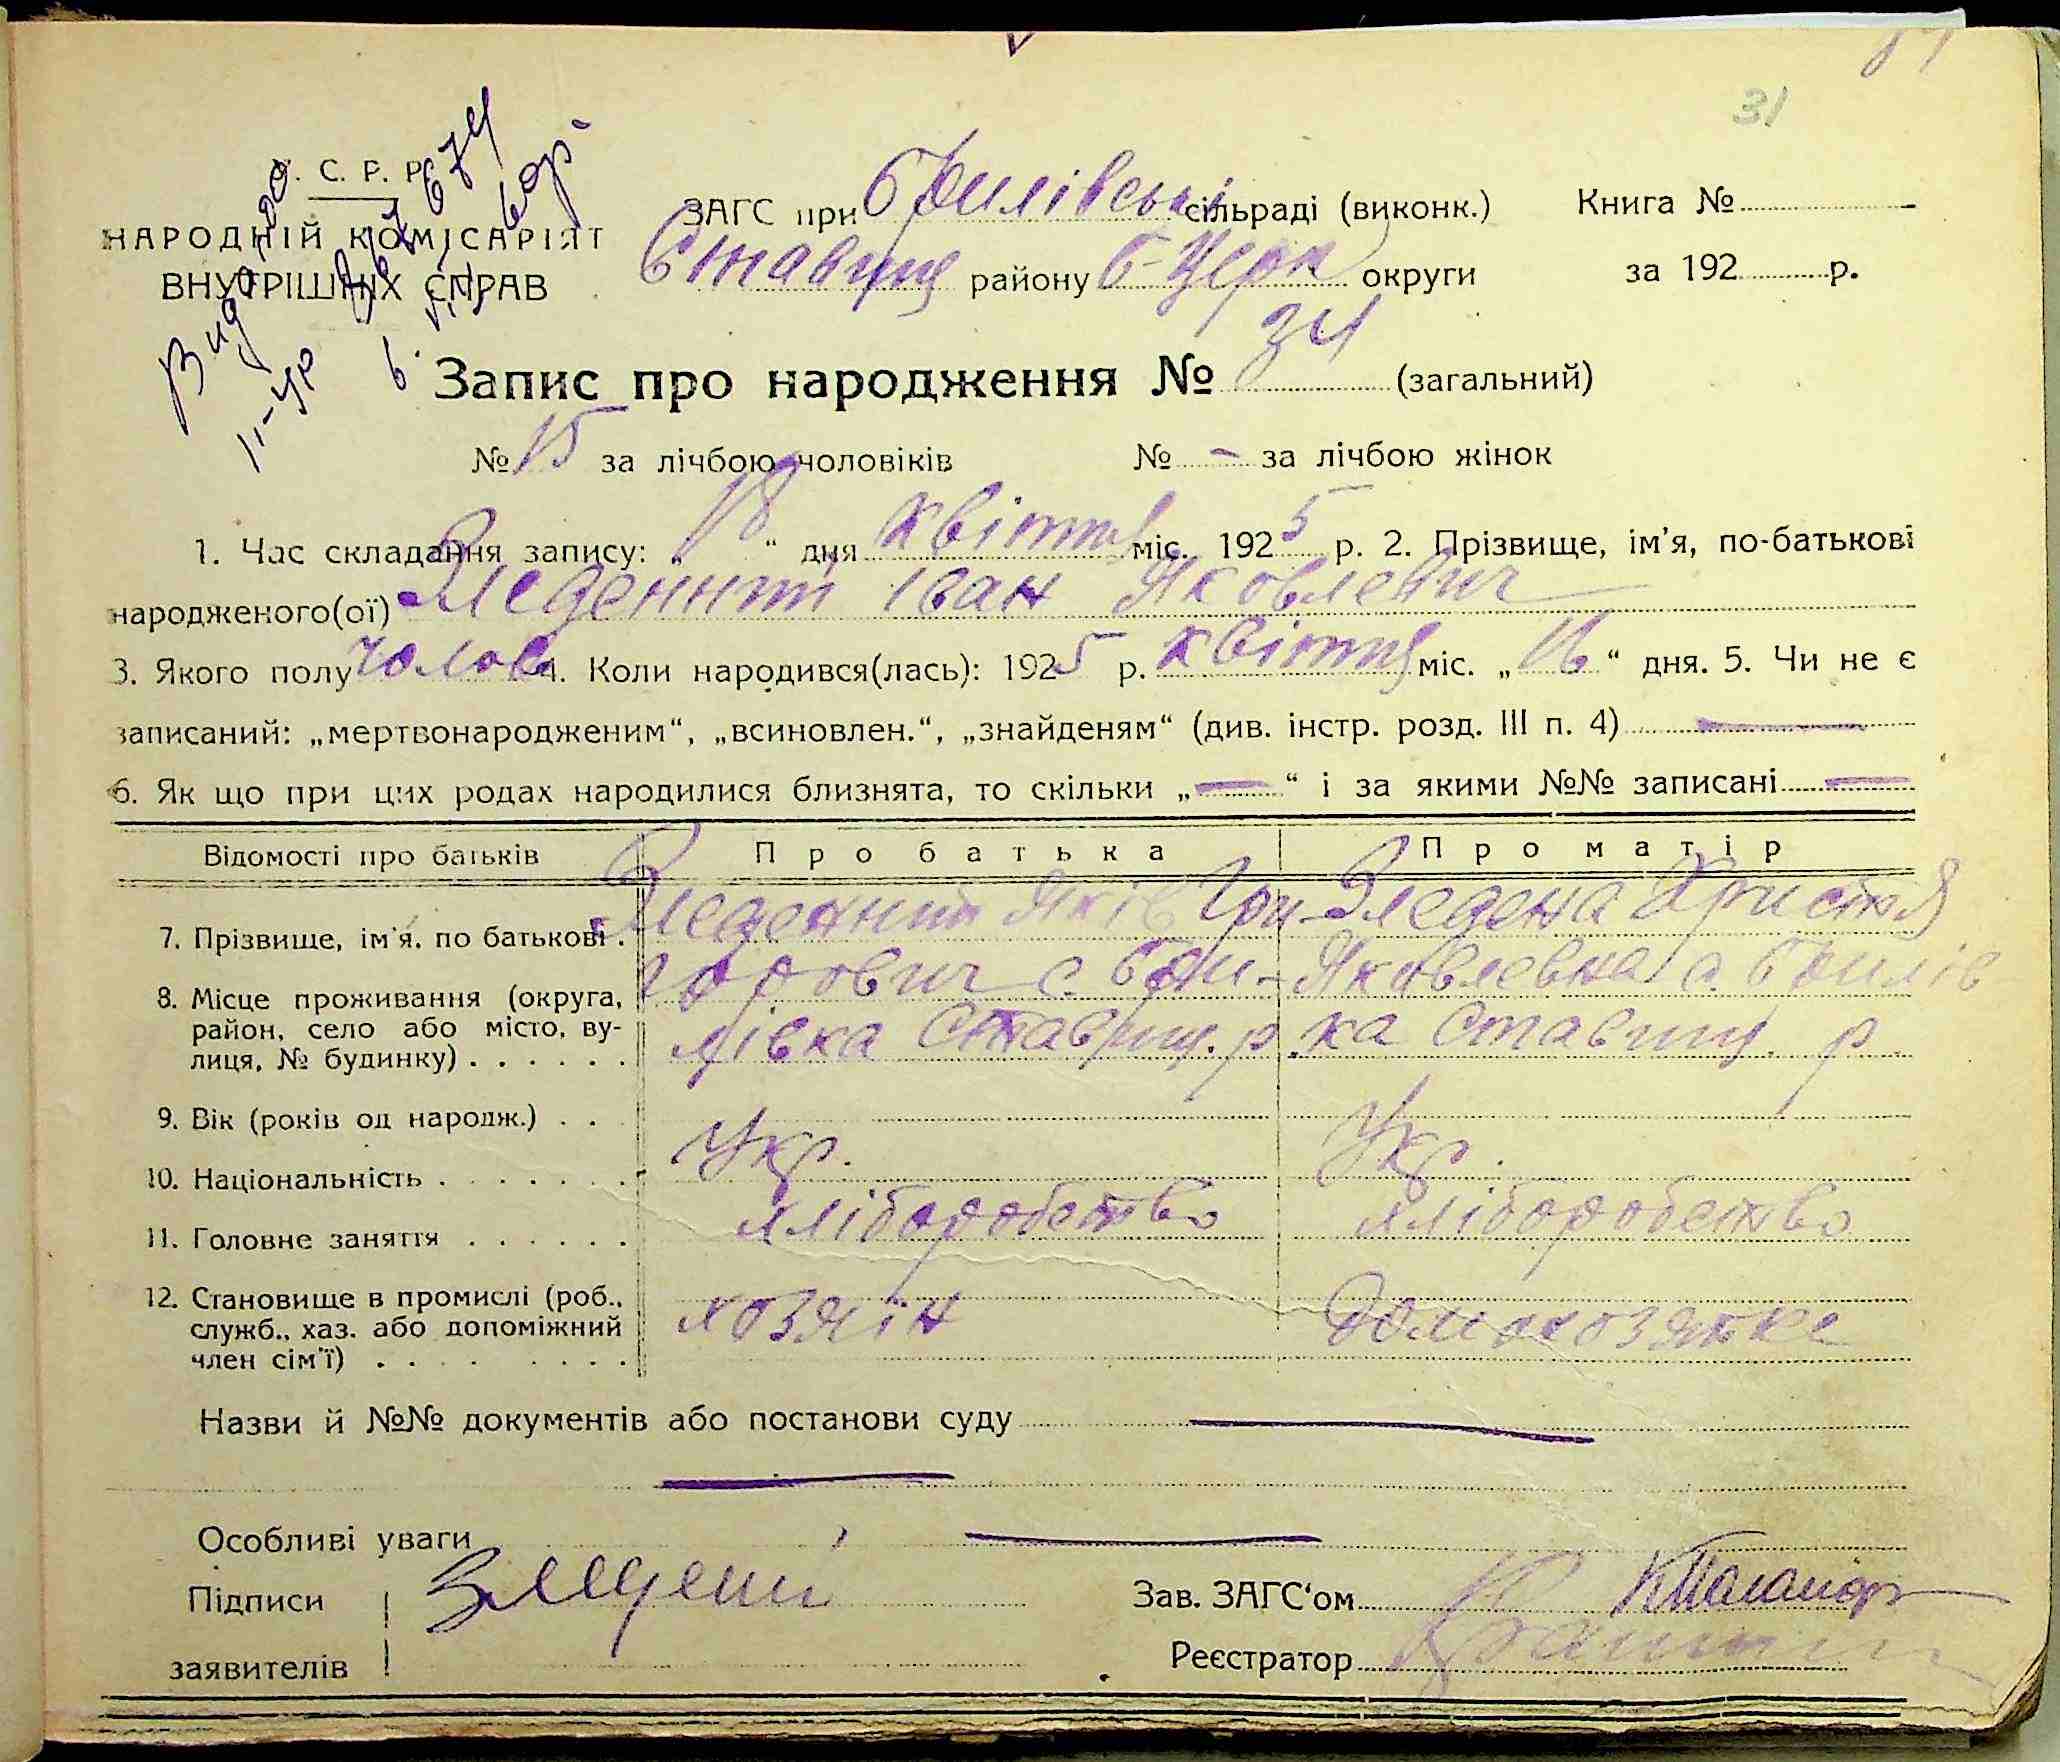 31
У. С. Р. Р.
НАРОДНІЙ КОМІСАРІЯТ
ВНУТРІШНІХ СПРАВ
ЗАГС при сільраді (виконк.) Книга №
Ставищ району Б-Церк округи за 192 р.
Запис про народження № 34 (загальний)
№ 15 за лічбою чоловіків № - за лічбою жінок
1. Час складання запису: „18“ дня квітня міс. 1925 р. 2. Прізвище, ім’я, по-батькові
народженого(ої) Іван Яковлевич
3. Якого полу чолов 4. Коли народився(лась): 1925 р. квітня міс. „16“ дня. 5. Чи не є
записаний: „мертвонародженим“, „всиновлен.“, „знайденям“ (див. інстр. розд. III п. 4) —
6. Як що при цих родах народилися близнята, то скільки „—“ і за якими №№ записані —
Відомості про батьків Про батька Про матір
7. Прізвище, ім’я, по батькові . Яків Гри- Зледена Христя
горович с. Яковлевна с.
8. Місце проживання (округа,
район, село або місто, ву-
лиця, № будинку) . . . . . . лівка Ставищ. р. ка Ставищ. р.
9. Вік (років од народж.) . .
10. Національність . . . . . . . Укр. Укр.
11. Головне заняття . . . . . . хліборобство хліборобство
12. Становище в промислі (роб.,
служб., хаз. або допоміжний
член сім’ї) . . . . . . . . хозяїн домохозяйке
Назви й №№ документів або постанови суду —
Особливі уваги —
Підписи
заявителів
Зав. ЗАГС‘ом
Реєстратор